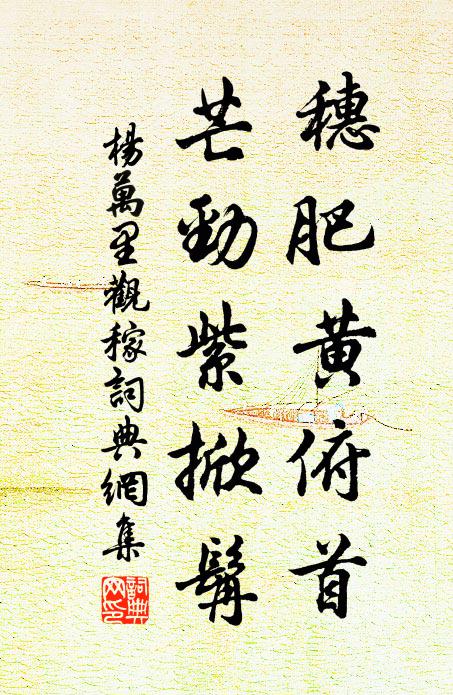 穗肥黄俯首
芒勁紫掀髯
楊萬里觀稼詞典網集
詞典网印